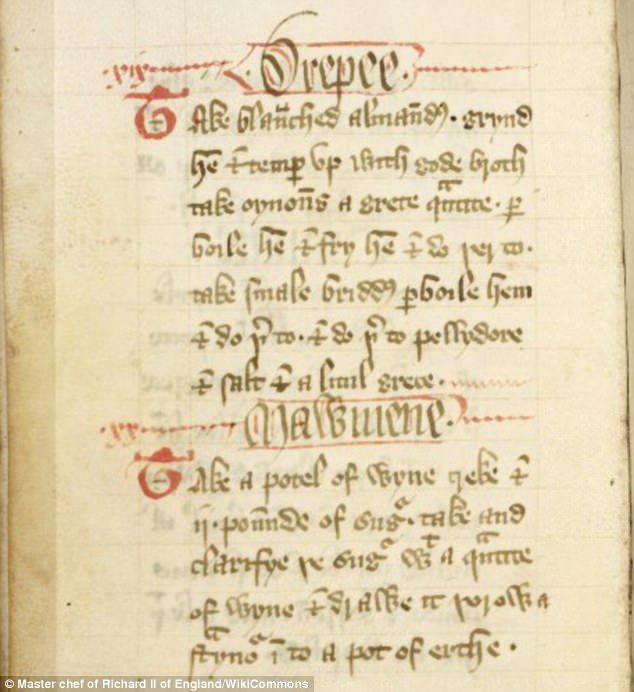 xix Drepee.
Take blāched almand̉. grynd
hē ⁊ temp̱ vp with gode broth
take oynoñs a grete qᵃtite. ꝑ
boile hē ⁊ fry hē ⁊ do þer to.
take smale bridd̉ ꝑboile hem
⁊ do þ̉ to. ⁊ do þ̉ to pellydore
⁊ salt ⁊ a litul grece.
xx Mawmene.
Take a potel of wyne greke ⁊
ij. poūnde of sugᵃ. take and
clarifye þe sugᵃ wᵗ a qᵃtite
of wyne ⁊ drawe it þorow a
stynoᵃ ī to a pot of erthe.
© Master chef of Richard II of England/WikiCommons